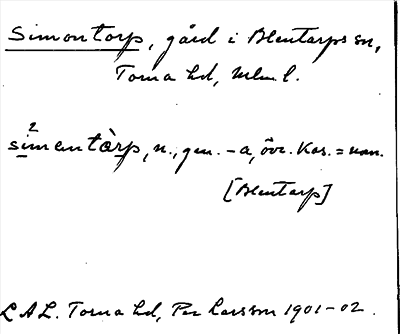 Simontorp, gård i Blentarps sn,
Torna hd, Mlm l.
s²imentàrp, n., gen. -a, övr. Kas. = nom.
[Blentarp]
LAL. Torna hd, Per Larsson 1901-02.